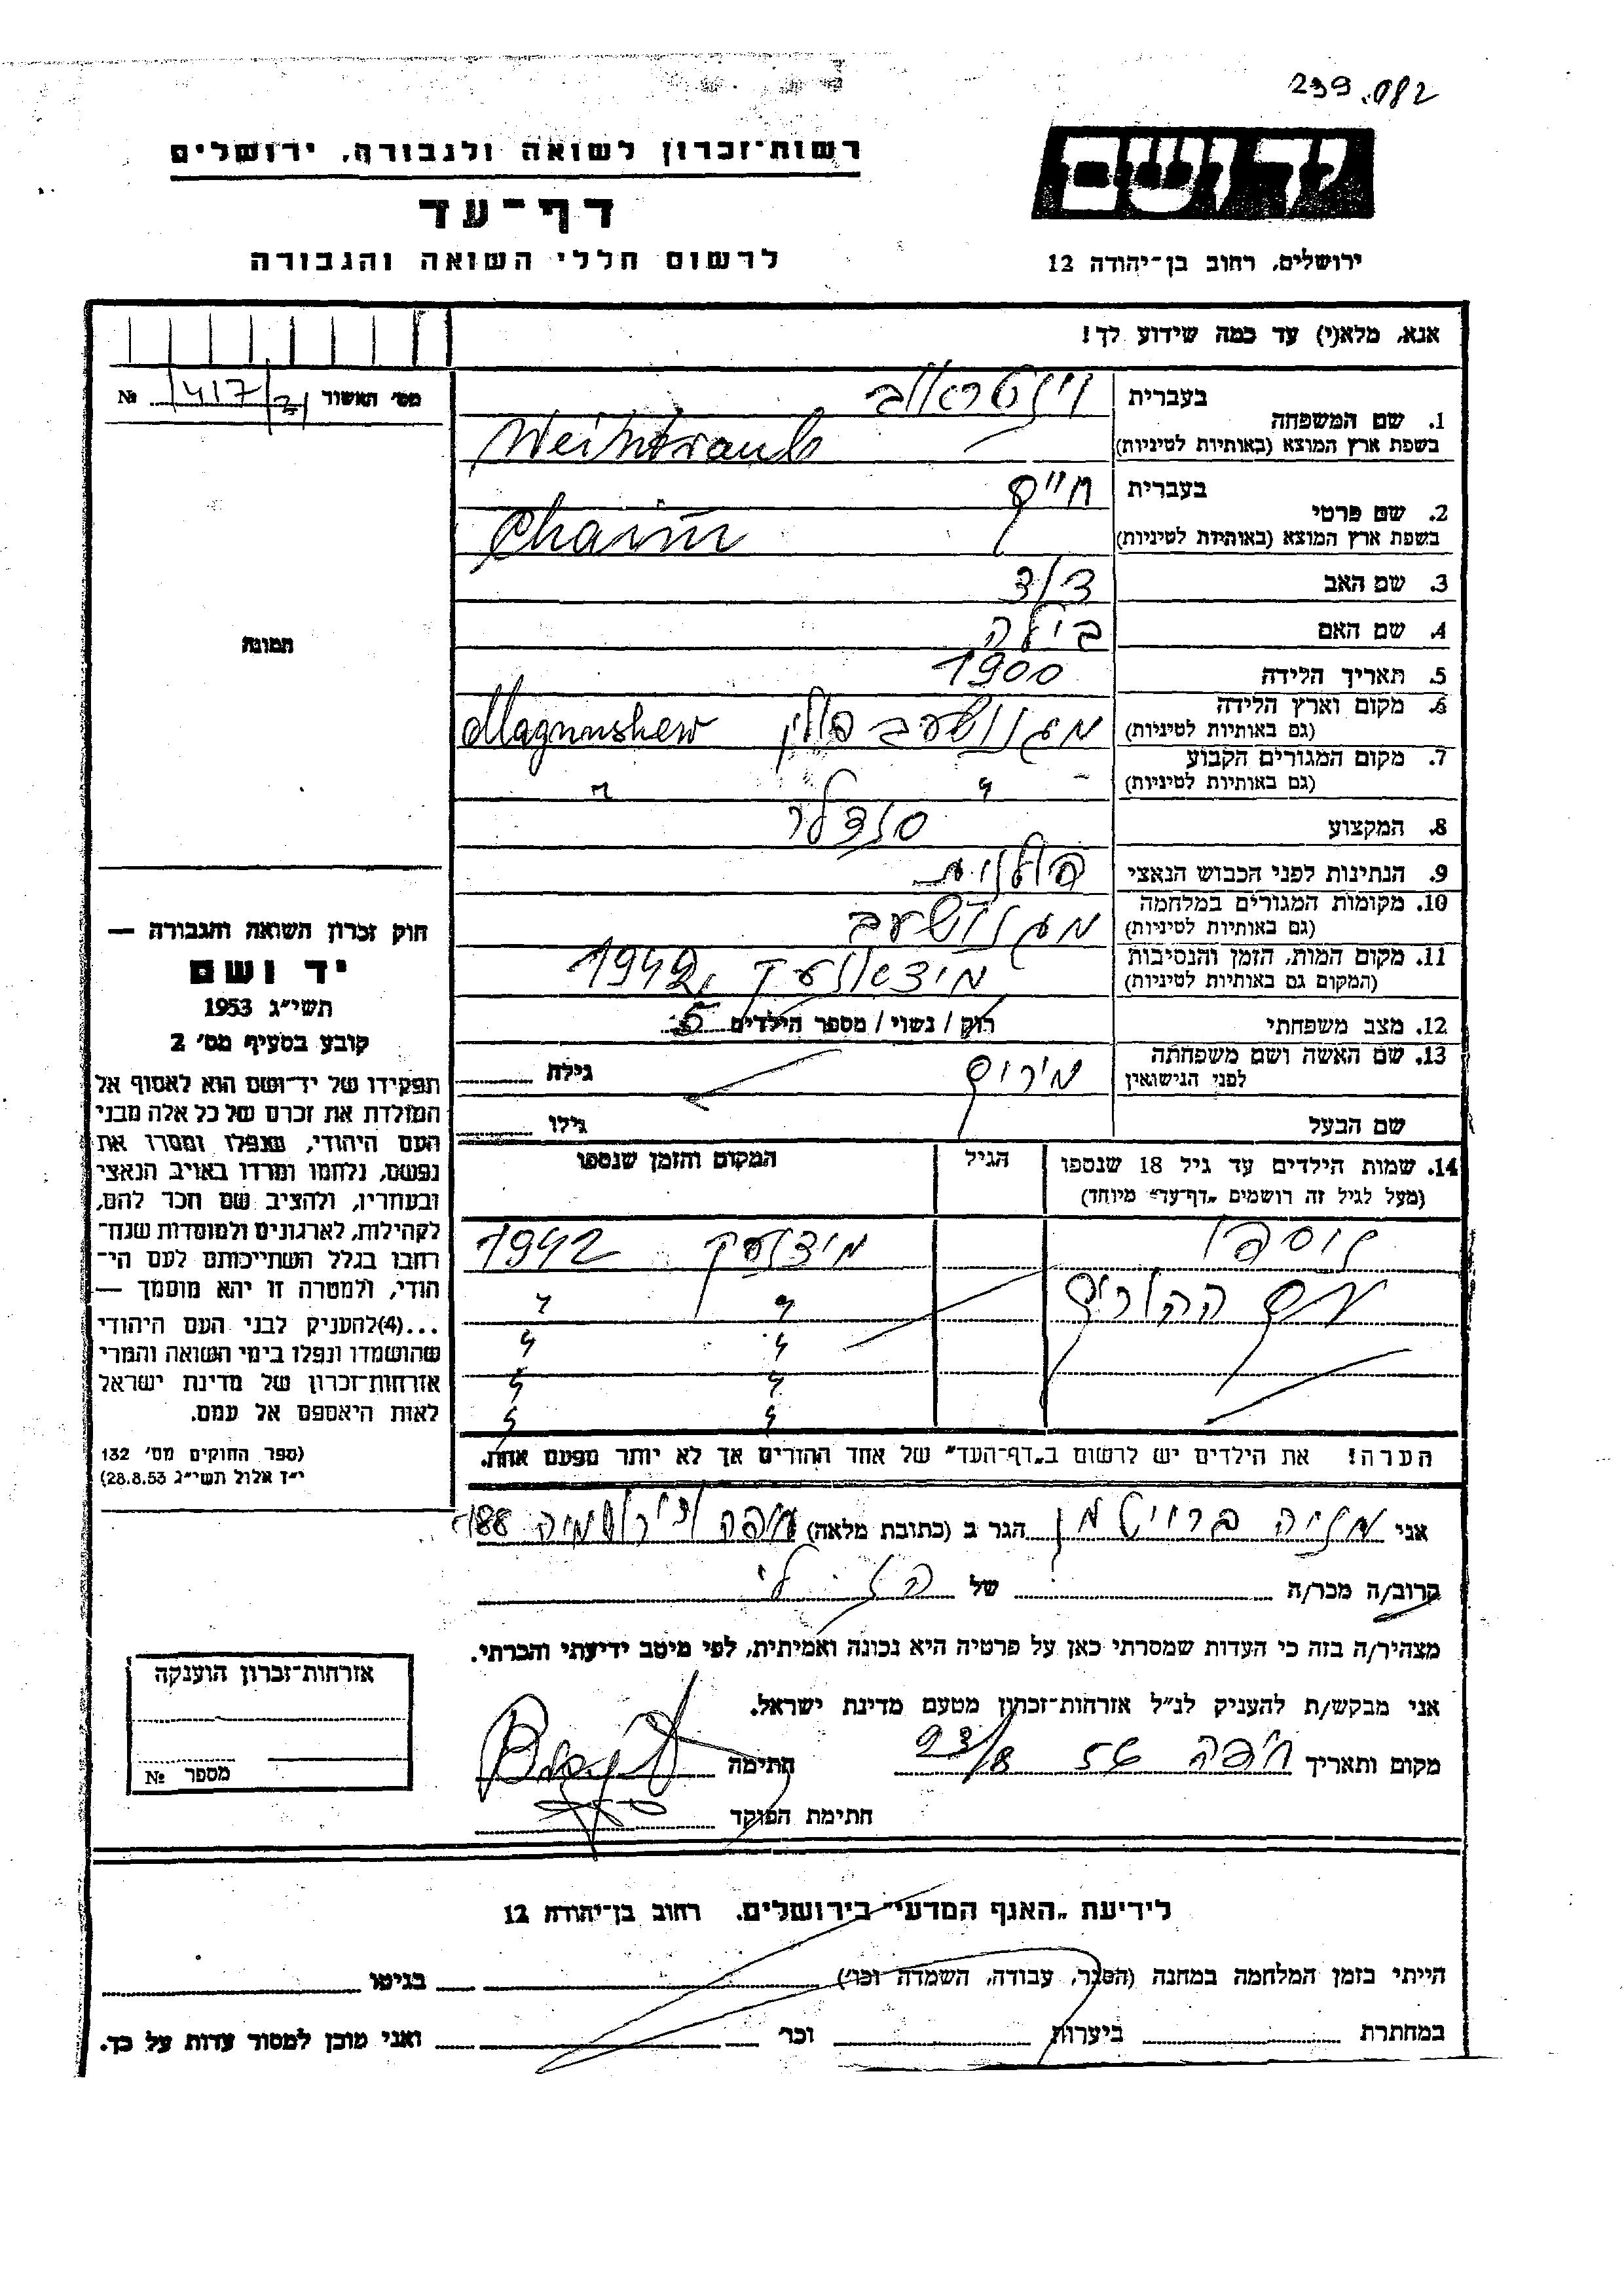 239.082
יד ושם
ירושלים, רחוב בן־יהודה 12
רשות־זכרון לשואה ולגבורה, ירושלים
דף־עד
לרשום חללי השואה והגבורה
אנא, מלא(י) עד כמה שידוע לך!
מס׳ האשור № 417/21
תמונה
1. שם המשפחה
בעברית וינטראוב
בשפת ארץ המוצא (באותיות לטיניות) Weintraub
2. שם פרטי
בעברית חיים
בשפת ארץ המוצא (באותיות לטיניות) Chaim
3. שם האב דוד
4. שם האם בילה
5. תאריך הלידה 1900
6. מקום וארץ הלידה מגנושעב פולין Magnushew
(גם באותיות לטיניות)
7. מקום המגורים הקבוע " "
(גם באותיות לטיניות)
8. המקצוע סנדלר
9. הנתינות לפני הכבוש הנאצי פולנית
10. מקומות המגורים במלחמה מגנושעב
(גם באותיות לטיניות)
11. מקום המות, הזמן והנסיבות 1942
(המקום גם באותיות לטיניות)
12. מצב משפחתי רוק / נשוי / מספר הילדים 5
13. שם האשה ושם משפחתה מירים גילה
לפני הנישואין
שם הבעל גילו
14. שמות הילדים עד גיל 18 שנספו הגיל המקום והזמן שנספו
(מעל לגיל זה רושמים „דף־עד״ מיוחד)
נוספו 1942
עם ההורים " "
" "
" "
" "
הערה! את הילדים יש לרשום ב„דף־העד״ של אחד ההורים אך לא יותר מפעם אחת.
חוק זכרון השואה והגבורה —
יד ושם
תשי״ג 1953
קובע בסעיף מס׳ 2
תפקידו של יד־ושם הוא לאסוף אל
המולדת את זכרם של כל אלה מבני
העם היהודי, שנפלו ומסרו את
נפשם, נלחמו ומרדו באויב הנאצי
ובעוזריו, ולהציב שם וזכר להם,
לקהילות, לארגונים ולמוסדות שנח־
רבו בגלל השתייכותם לעם הי־
הודי, ולמטרה זו יהא מוסמך —
...(4) להעניק לבני העם היהודי
שהושמדו ונפלו בימי השואה והמרי
אזרחות־זכרון של מדינת ישראל
לאות היאספם אל עמם.
(ספר החוקים מס׳ 132
י״ז אלול תשי״ג 28.8.53)
אני מניה ברויטמן הגר ב (כתובת מלאה) חיפה 188
קרוב/ה מכר/ה של
מצהיר/ה בזה כי העדות שמסרתי כאן על פרטיה היא נכונה ואמיתית, לפי מיטב ידיעתי והכרתי.
אני מבקש/ת להעניק לנ״ל אזרחות־זכרון מטעם מדינת ישראל.
מקום ותאריך חיפה 56 23/8 חתימה
חתימת הפוקד
אזרחות־זכרון הוענקה
מספר №
לידיעת „האגף המדעי״ בירושלים. רחוב בן־יהודה 12
הייתי בזמן המלחמה במחנה (הסגר, עבודה, השמדה וכו׳) בגיטו
במחתרת ביערות וכו׳ ואני מוכן למסור עדות על כך.